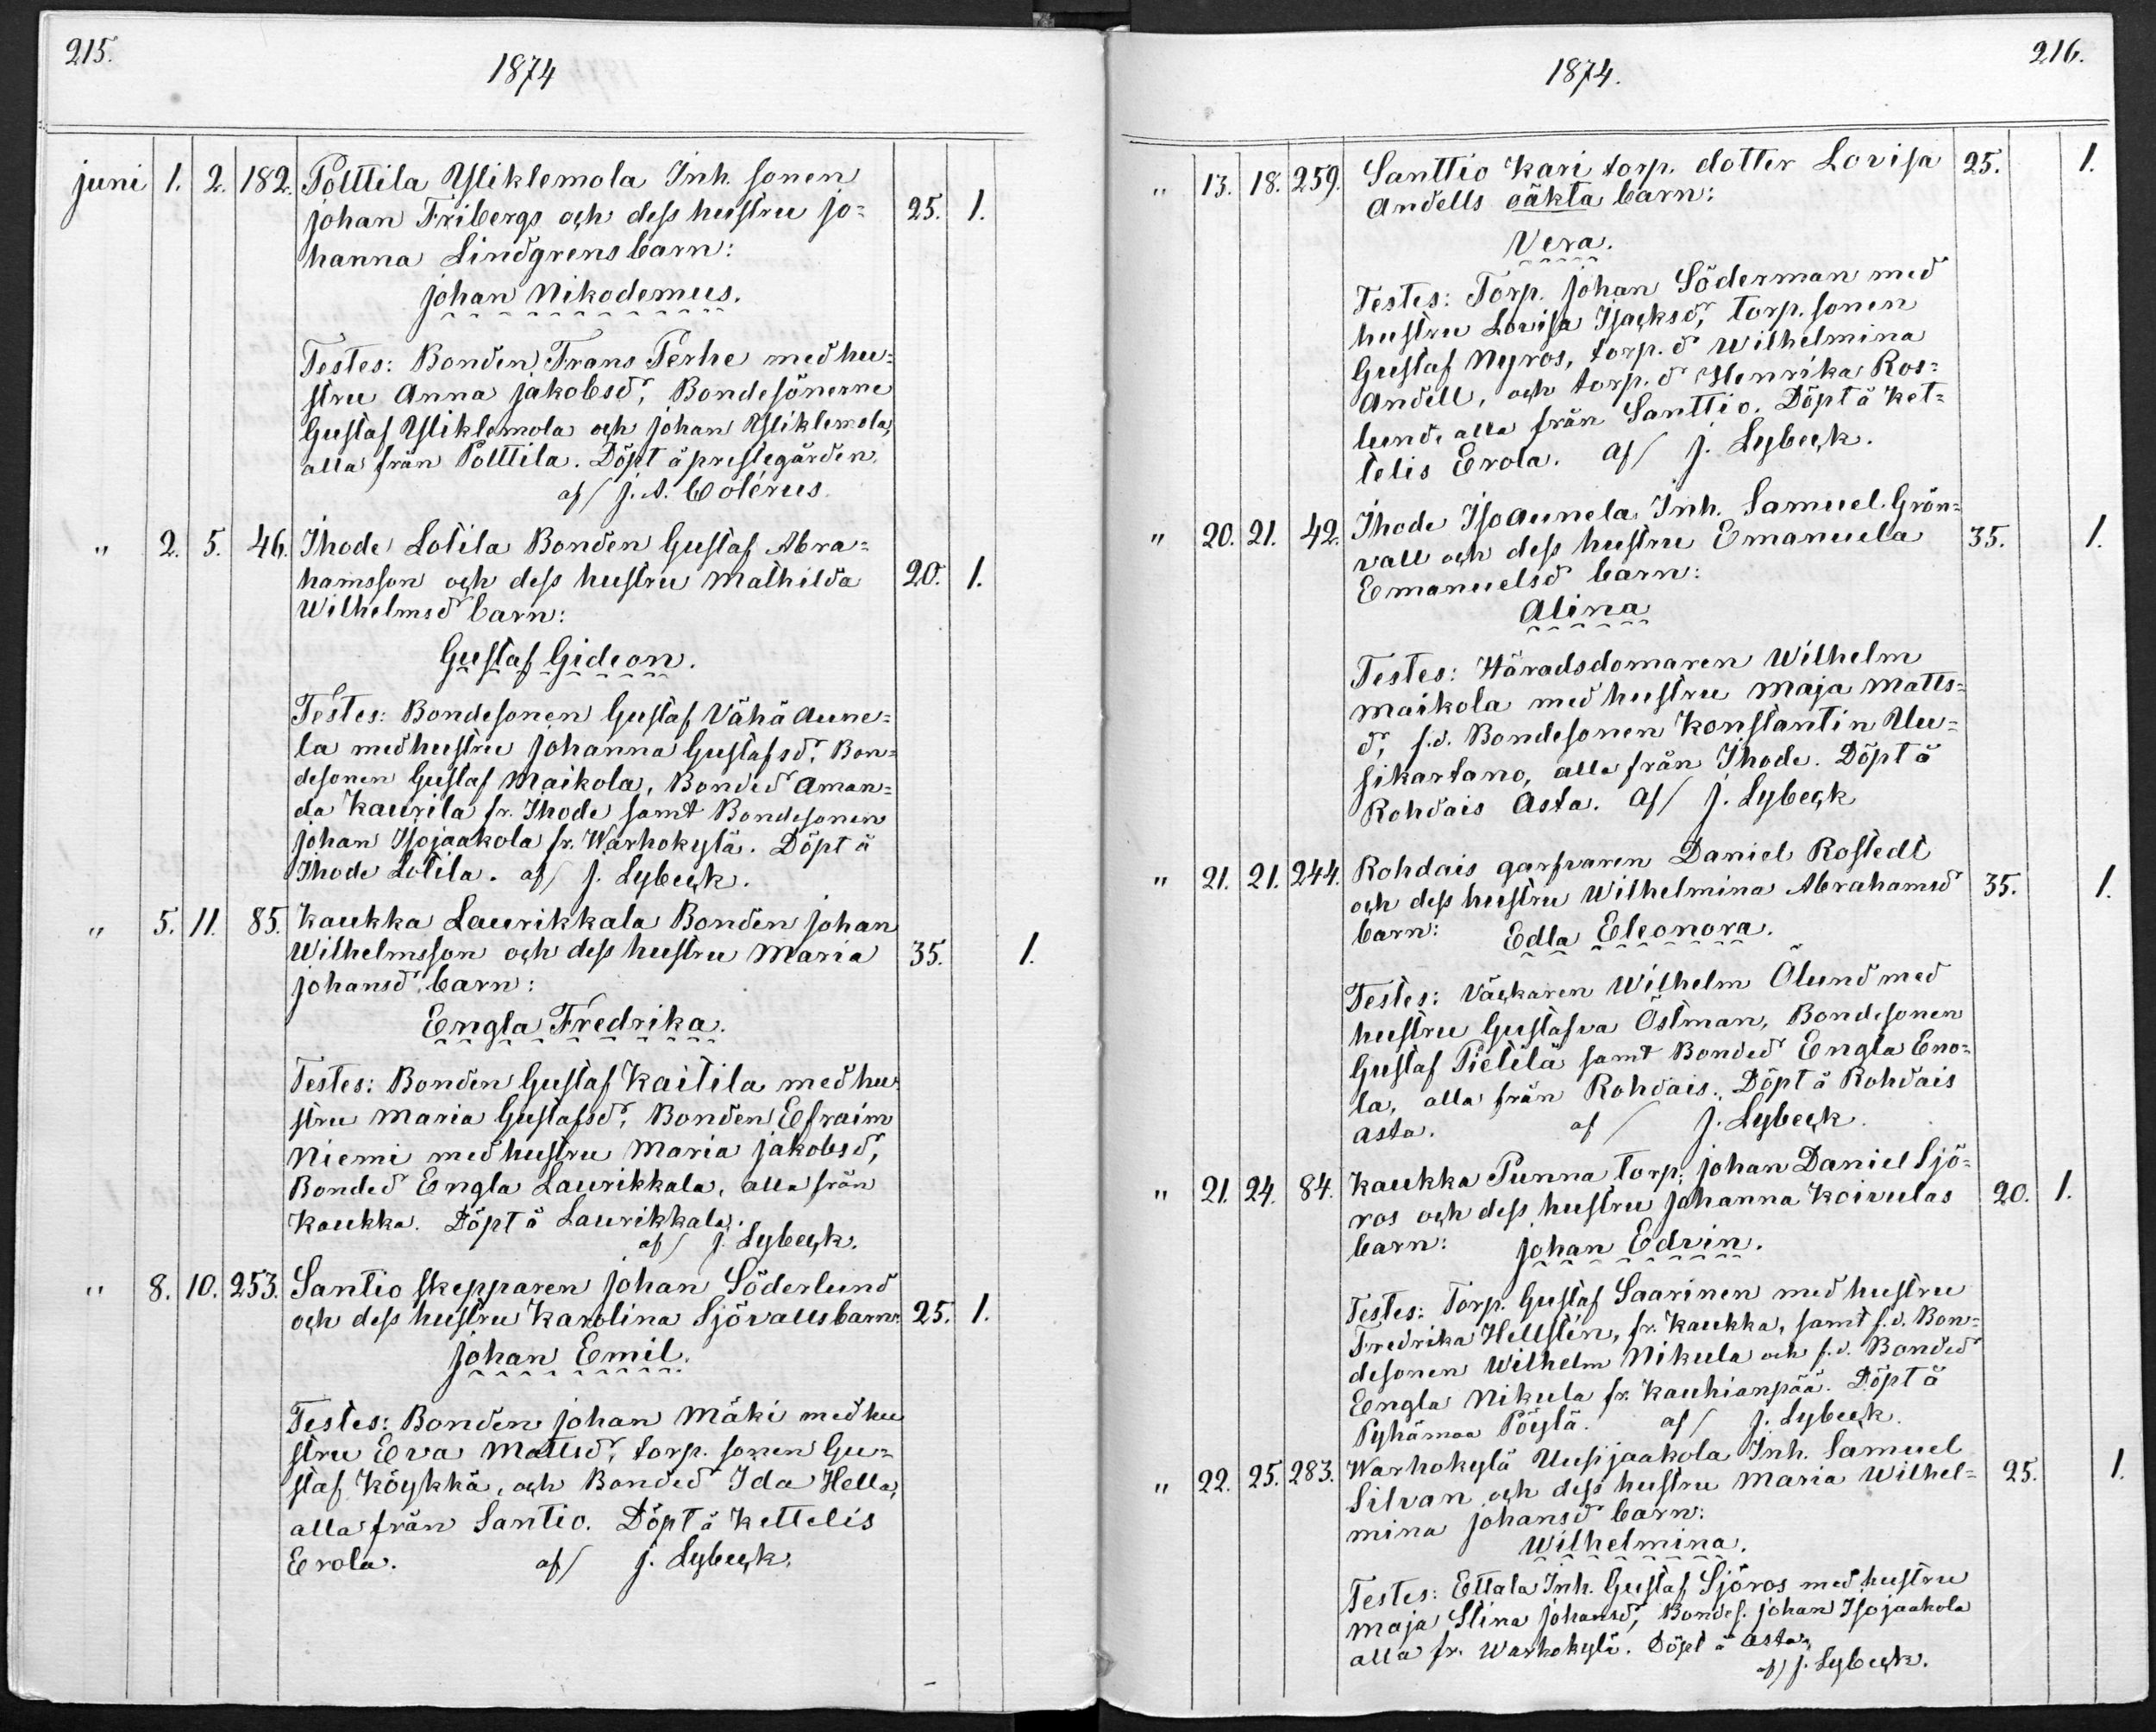 215.
1874
juni 1. 2. 182. Polttila Yliklemola Inh. sonen
Johan Fribergs och dess hustru Jo= 25. 1.
hanna Lindgrens barn:
Johan Nikodemus.
Testes: Bonden Frans Perhe med hu=
stru Anna Jakobsdr, Bondesönerne
Gustaf Yliklemola och Johan Yliklemola,
alla från Polttila. Döpt å prestegården.
af/ J. A. Colérus.
" 2. 5. 46. Ihode Lotila Bonden Gustaf Abra=
hamsson och dess hustru Mathilda 20. 1.
Wilhelmsdr barn:
Gustaf Gideon.
Testes: Bondesonen Gustaf Vähä Aune=
la med hustru Johanna Gustafsdr. Bon=
desonen Gustaf Maikola, Bondedr Aman=
da Kaurila fr. Ihode samt Bondesonen
Johan Isojaakola fr. Warhokylä. Döpt å
Ihode Lotila. af/ J. Lybeck.
" 5. 11. 85. Kaukka Laurikkala Bonden Johan
Wilhelmsson och dess hustru Maria 35. 1.
Johansdr barn:
Engla Fredrika.
Testes: Bonden Gustaf Kaitila med hu
stru Maria Gustafsdr, Bonden Efraim
Niemi med hustru Maria Jakobsdr,
Bondedr Engla Laurikkala, alla från
Kaukka. Döpt å Laurikkala.
af/ J. Lybeck.
" 8. 10. 253. Santio skepparen Johan Söderlund
och dess hustru Karolina Sjövalls barn: 25. 1.
Johan Emil.
Testes: Bonden Johan Mäki med hu
stru Eva Mattsdr, torp. sonen Gu=
staf Köykkä, och Bondedr Ida Hella,
alla från Santio. Döpt å Kettelis
Erola. af/ J. Lybeck.
216.
1874.
" 13. 18. 259. Santtio Kari torp. dotter Lovisa 25. 1.
Andells oäkta barn:
Vera.
Testes: Torp. Johan Söderman med
hustru Lovisa Isacksdr, torp. sonen
Gustaf Nyros, torp. dr Wilhelmina
Andell, och torp. dr Henrika Ros=
lund, alla från Santtio. Döpt å Ket=
telis Erola. af/ J. Lybeck.
" 20. 21. 42. Ihode Isoaunela Inh. Samuel Grön=
vall och dess hustru Emanuela 35. 1.
Emanuelsdr barn:
Alina
Testes: Häradsdomaren Wilhelm
Maikola med hustru Maja Matts=
dr, f.d. Bondesonen Konstantin Uu=
sikartano, alla från Ihode. Döpt å
Rohdais Asta. af/ J. Lybeck
" 21. 21. 244. Rohdais garfvaren Daniel Rostedt
och dess hustru Wilhelmina Abrahamsdr 35. 1.
barn: Edla Eleonora.
Testes: Väckaren Wilhelm Ölund med
hustru Gustafva Östman, Bondesonen
Gustaf Pietilä samt Bondedr Engla Eno=
la, alla från Rohdais. Döpt å Rohdais
Asta. af/ J. Lybeck.
" 21. 24. 84. Kaukka Punna torp. Johan Daniel Sjö=
ros och dess hustru Johanna Koivulas 20. 1.
barn: Johan Edvin.
Testes: Torp. Gustaf Saarinen med hustru
Fredrika Hellstén, fr. Kaukka, samt f.d. Bon=
desonen Wilhelm Nikula och f.d. Bondedr
Engla Nikula fr. Kauhianpää. Döpt å
Pyhämaa Pöylä. af/ J. Lybeck.
" 22. 25. 283. Warhokylä Uusijaakola Inh. Samuel
Silvan och dess hustru Maria Wilhel= 25. 1.
mina Johansdr barn:
Wilhelmina.
Testes: Ettala Inh. Gustaf Sjöros med hustru
Maja Stina Johansdr, Bondes. Johan Isojaakola
alla fr. Warhokylä. Döpt å Asta.
af/ J. Lybeck.